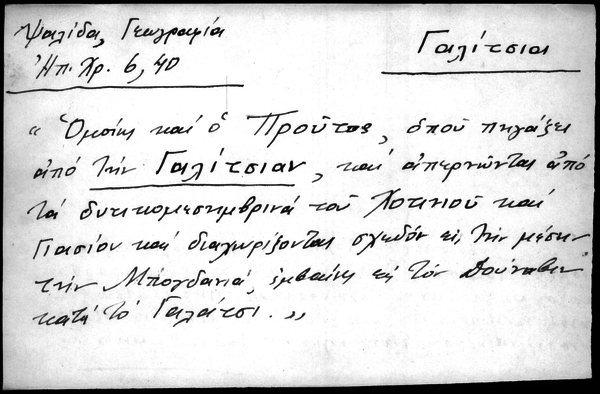 Ψαλίδα, Γεωγραφία
Ἠπ. Χρ. 6, 40
Γαλίτσια
" Ὁμοίως καί ὁ Προῦτος, ὁποῦ πηγάζει
ἀπό τήν Γαλίτσιαν, καί ἀπερνῶντας ἀπό
τά δυτικομεσημβρινά τοῦ Χοτινοῦ καί
Γιασίου καί διαχωρίζοντας σχεδόν εἰς τήν μέσην
τήν Μπογδανιά, ἐμβαίνει εἰς τόν Δούναβιν
κατά τό Γαλάτσι. "